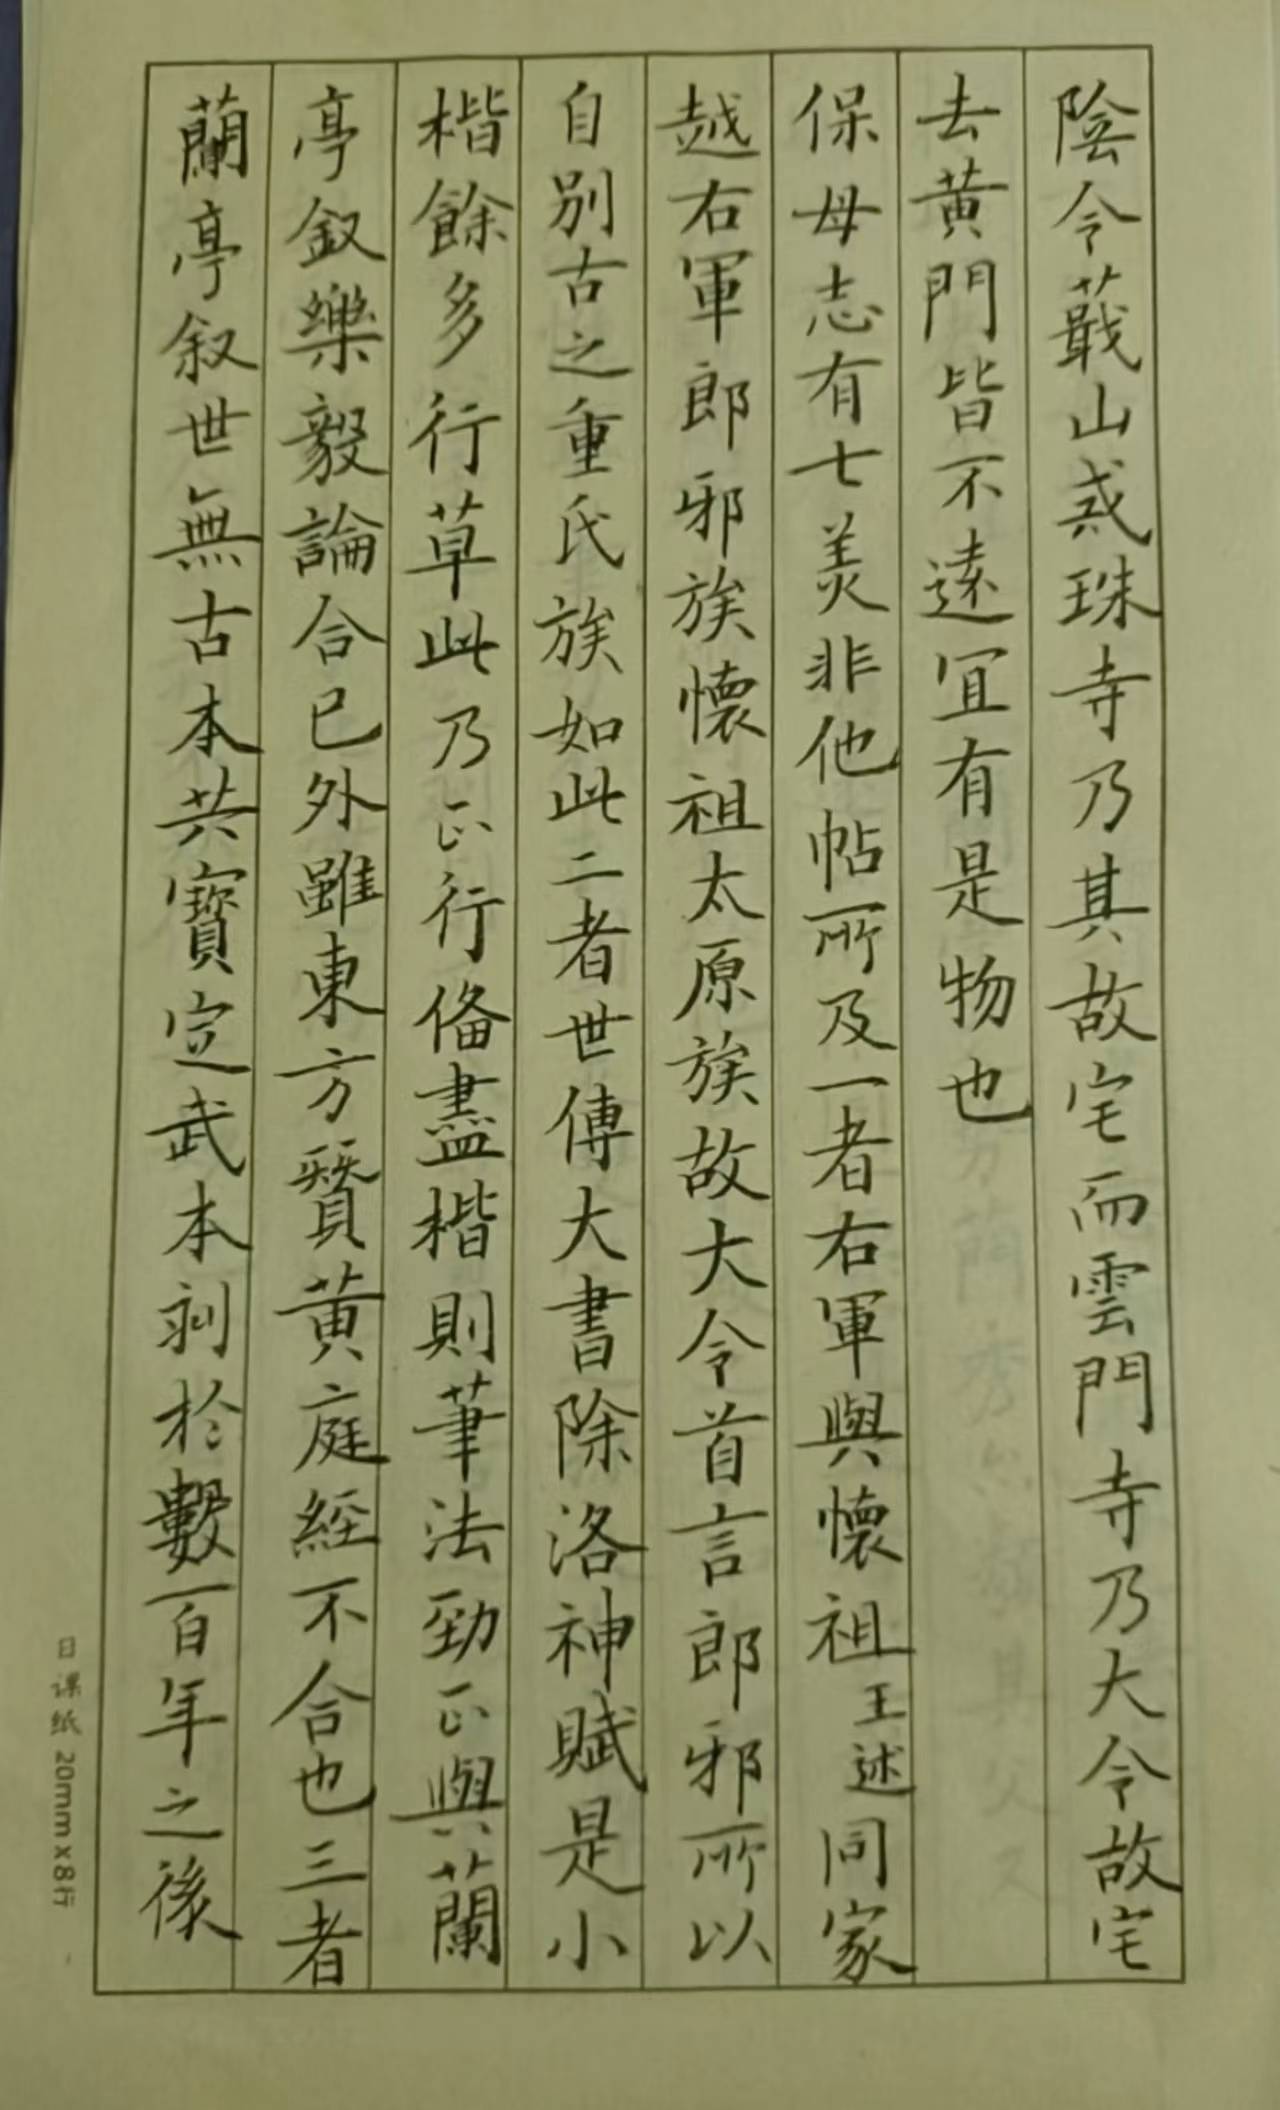 陰令蕺山戒珠寺乃其故宅而雲門寺乃大令故宅
去黄門皆不遠宜有是物也
保母志有七美非他帖所及一者右軍與懷祖王述同家
越右軍郎邪族懷祖太原族故大令首言郎邪所以
自别古之重氏族如此二者世傳大書除洛神賦是小
楷餘多行草此乃正行俻盡楷則筆法勁正與蘭
亭叙樂毅論合已外雖東方贊黄庭經不合也三者
蘭亭叙世無古本共寶定武本刻於數百年之後
日课纸 20mm x8行